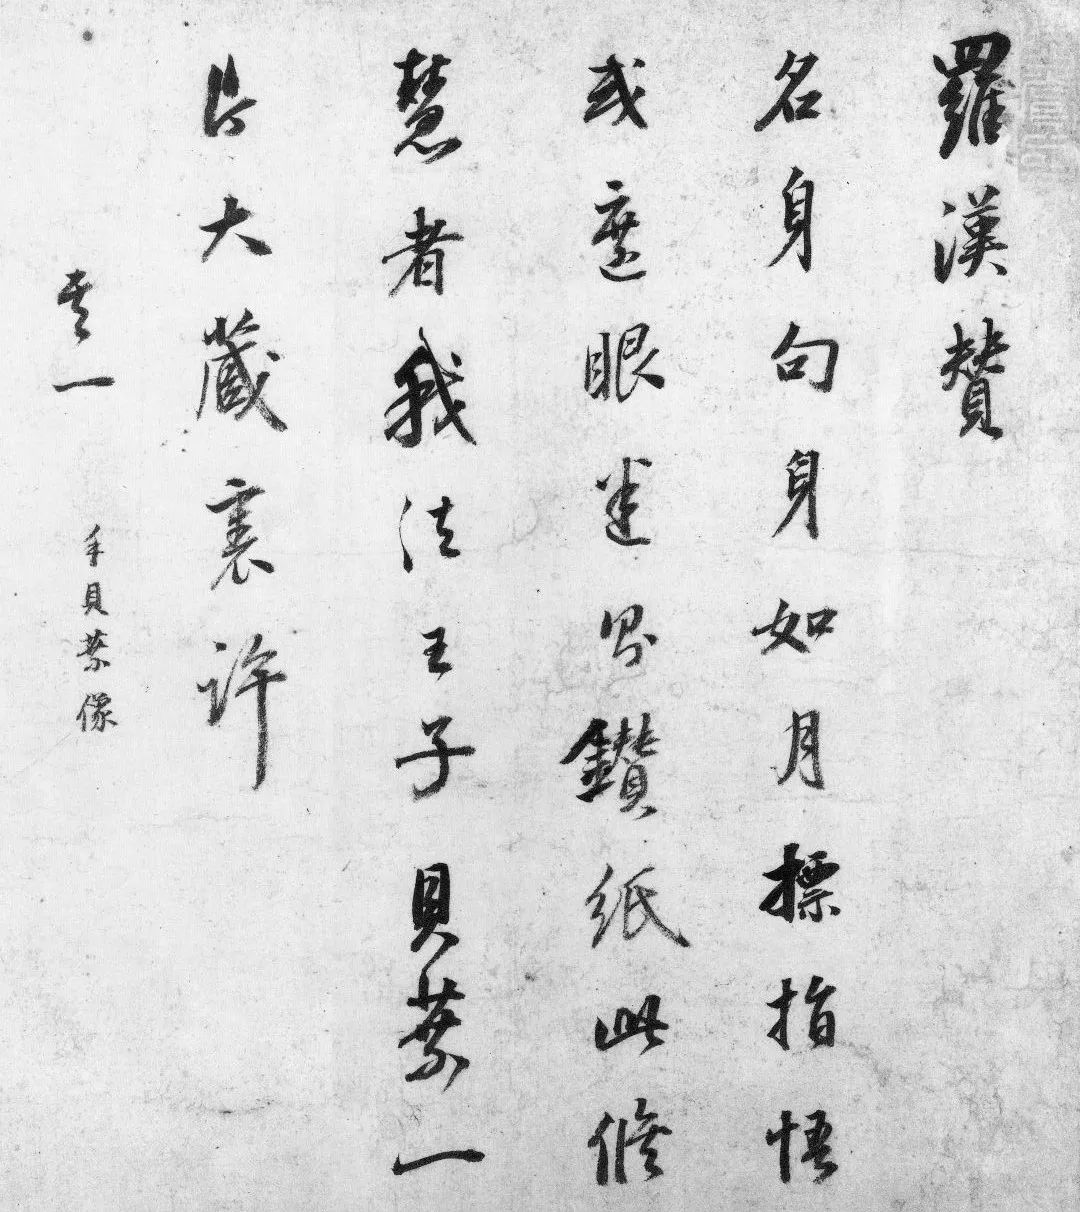 羅漢贊
名身句身如月標指悟
或遮眼迷鑽紙此脩
慧者我法王子貝葉一
片大藏裏許
其一 手貝葉像